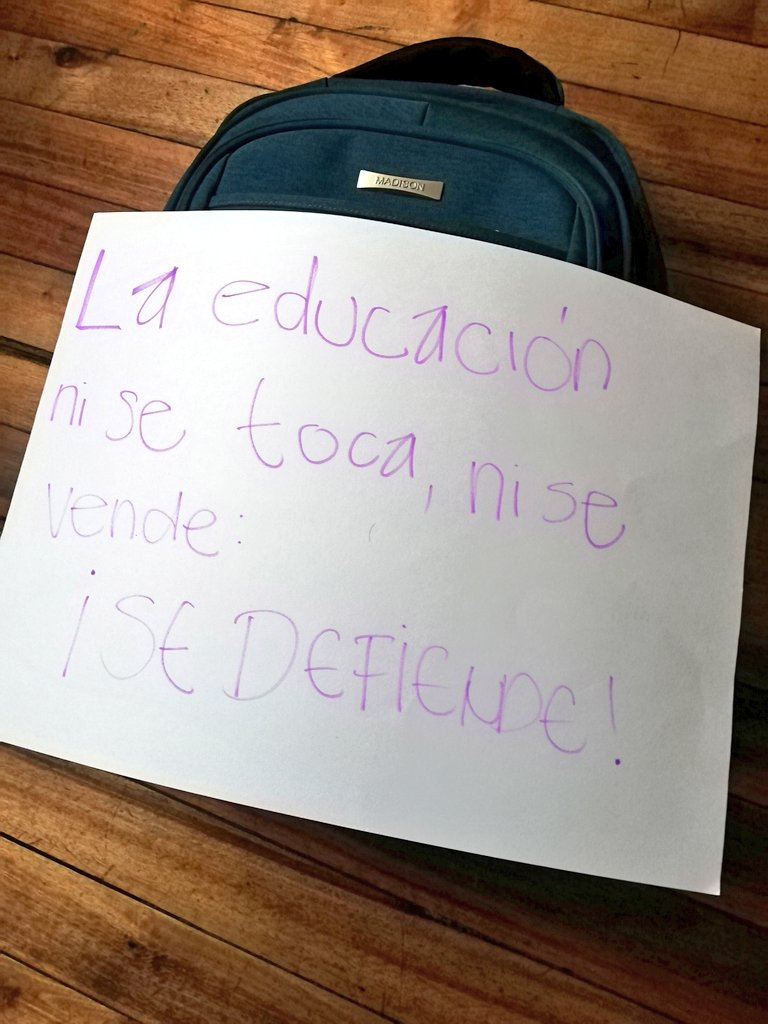 MADISON
La educación
ni se toca, ni se
vende:
¡SE DEFIENDE!